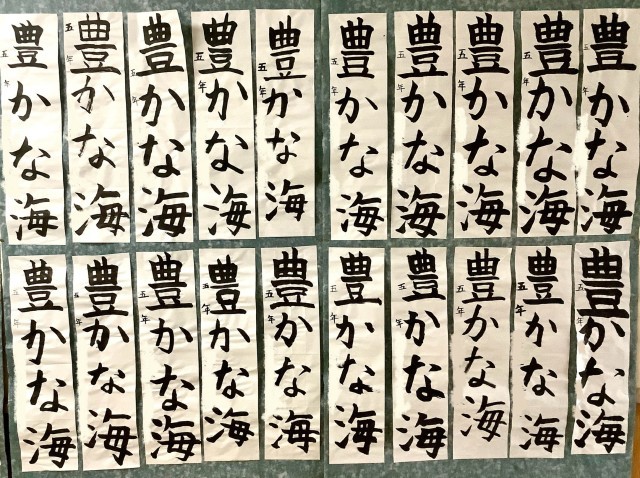 豊かな海
五年
豊かな海
五年
豊かな海
五年
豊かな海
五年
豊かな海
五年
豊かな海
五年
豊かな海
五年
豊かな海
五年
豊かな海
五年
豊かな海
五年
豊かな海
五年
豊かな海
五年
豊かな海
五年
豊かな海
五年
豊かな海
五年
豊かな海
五年
豊かな海
五年
豊かな海
五年
豊かな海
五年
豊かな海
五年